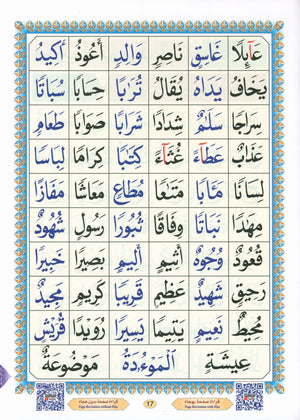 عَآئِلًا غَاسِقٍ نَاصِرٍ وَالِدٍ أَعُوذُ أَكِيدُ
يَخَافُ يَدَاهُ يُقَالُ تُرَابًا حِسَابًا سُبَاتًا
سِرَاجًا سَلَامٌ شِدَادًا شَرَابًا صَوَابًا طَعَامٍ
عَذَابٌ عَطَآءً غُثَآءً كِتَابًا كِرَامًا لِبَاسًا
لِسَانًا مَـَٔابًا مَتَاعًا مُطَاعٍ مَعَاشًا مَفَازًا
مِهَادًا نَبَاتًا وِفَاقًا ثُبُورًا رَسُولٍ شُهُودٌ
قُعُودٌ وُجُوهٌ أَثِيمٍ أَلِيمٍ بَصِيرًا خَبِيرًا
رَحِيقٍ شَهِيدٌ عَظِيمٍ قَرِيبًا كَرِيمٍ مَجِيدٌ
مُحِيطٌ نَعِيمٍ يَتِيمًا يَسِيرًا رُوَيْدًا قُرَيْشٍ
عِيشَةٍ الْمَوْءُدَةُ مَوْضُوعَةٌ
قراءة صفحة بتهجاء 17 قراءة صفحة بدون هجاء
Page Recitation with Hija Page Recitation without Hija